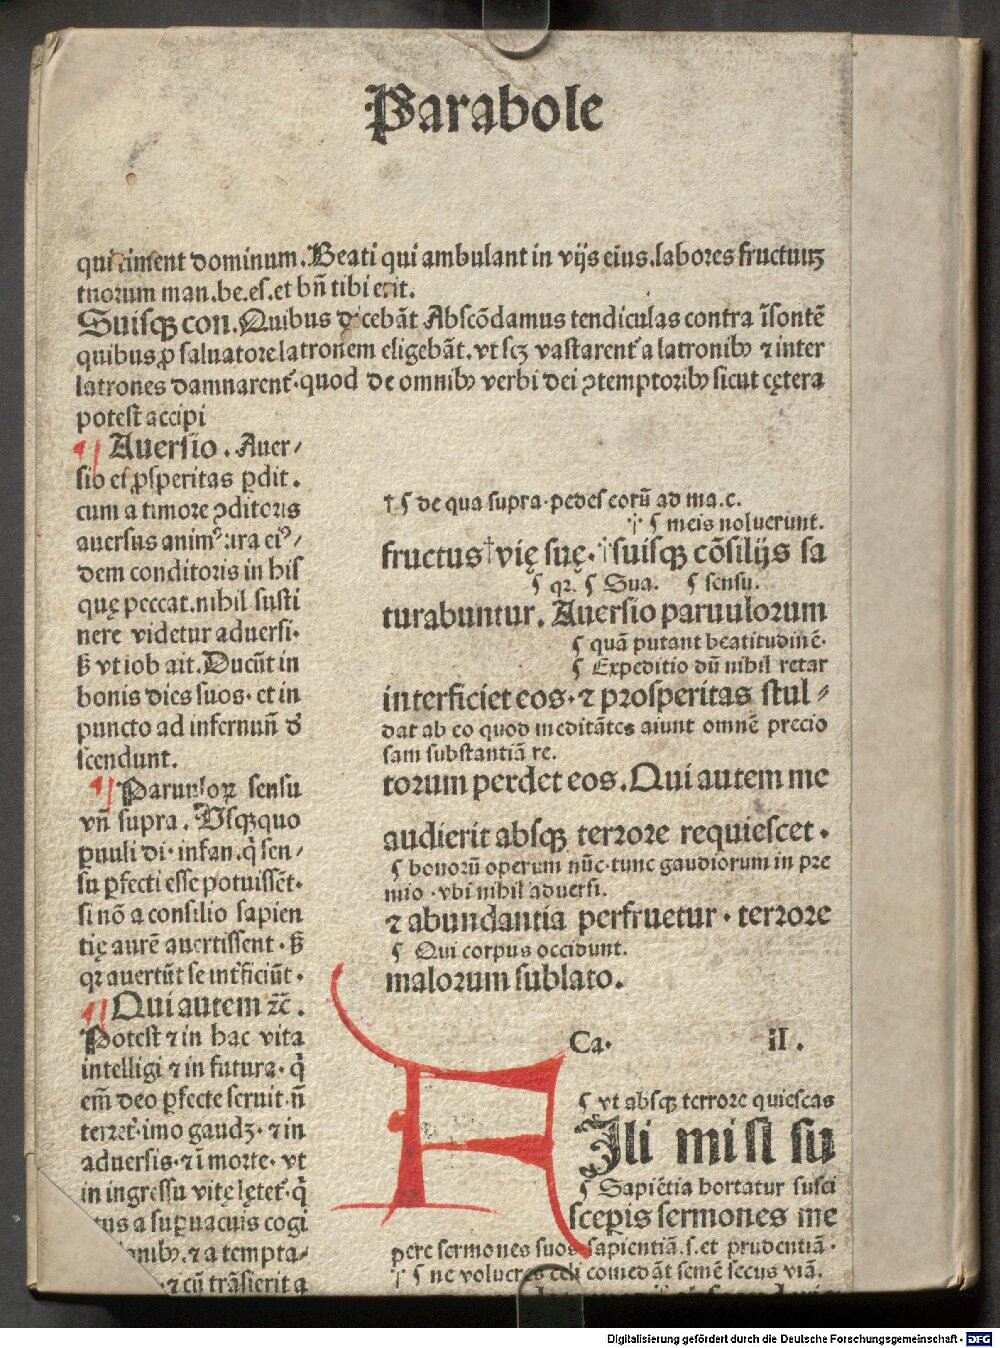 Parabole
qui timent dominum. Beati qui ambulant in vijs eius. labores fructuuʒ
tuorum man. be. es. et bñ tibi erit.
Suisqꝫ con. Quibus dicebãt Abscõdamus tendiculas contra ĩsontẽ
quibus ꝓ saluatore latronem eligebãt. vt scʒ vastarent᷑ a latronibꝰ ⁊ inter
latrones damnarent᷑. quod de omnibꝰ verbi dei ꝯtemptoribꝰ sicut cętera
potest accipi
¶ Auersio. Auer/
sio est ꝓsperitas ꝑdit.
cum a timore ꝯditoris
auersus animꝰ ira eiꝰ/
dem conditoris in his
quę peccat. nihil susti
nere videtur aduersi.
ß vt iob ait. Ducũt in
bonis dies suos. et in
puncto ad infernuñ d̃
scendunt.
¶ Paruuloꝝ sensu
vñ supra. Usqꝫquo
ꝑuuli di. infan. q̃ sen/
su ꝑfecti esse potuissẽt.
si nõ a consilio sapien
tię aurẽ auertissent. ß
qꝛ auertũt se int᷑ficiũt.
¶ Qui autem ⁊c̃.
Potest ⁊ in hac vita
intelligi ⁊ in futura. q̃
em̃ deo ꝑfecte seruit ñ
terret᷑. imo gaudʒ. ⁊ in
aduersis. ⁊ ĩ morte. vt
in ingressu vitę lętet᷑. q̃
tus a suꝑuacuis cogi
nibꝰ. ⁊ a tempta/
⁊ cũ trãsierit a
† ¶ de qua supra. pedes eorũ ad ma. c.
⁘ ¶ meis noluerunt.
fructus † vię suę. ⁘ suisqꝫ cõsilijs sa
¶ qꝛ. ¶ Sua. ¶ sensu.
turabuntur. Auersio paruulorum
¶ quã putant beatitudinẽ.
¶ Expeditio dũ nihil retar
interficiet eos. ⁊ prosperitas stul/
dat ab eo quod meditãtes aiunt omnẽ precio
sam substantiã re.
torum perdet eos. Qui autem me
audierit absqꝫ terrore requiescet.
¶ bonorũ operum nũc. tunc gaudiorum in pre
mio. vbi nihil aduersi.
⁊ abundantia perfruetur. terrore
¶ Qui corpus occidunt.
malorum sublato.
Ca. iI.
¶ vt absqꝫ terrore quiescas
F Ili mi si su
¶ Sapiẽtia hortatur susci
scepis sermones me
pere sermones suos sapientiã. s. et prudentiã.
⁘ ¶ ne volucres celi comedãt semẽ secus viã.
Digitalisierung gefördert durch die Deutsche Forschungsgemeinschaft - DFG